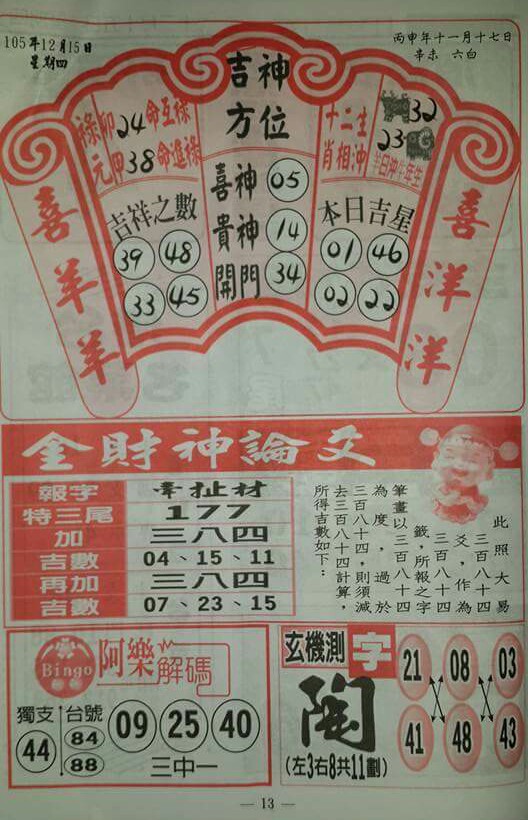 105年12月15日
星期四
丙申年十一月十七日
辛未 六白
吉神
方位
祿卯24命互祿
元甲38命進祿
十二生
肖相沖
32
23
羊日沖牛年生
喜神 05
貴神 14
開門 34
吉祥之數
39 48
33 45
本日吉星
01 46
02 22
喜羊羊
喜洋洋
金財神論爻
報字 牽扯材
特三尾 177
加 三八四
吉數 04、15、11
再加 三八四
吉數 07、23、15
此照大易
三百八十四
爻，作為
三百八十四
籤，所報之字
筆畫以三百八十四
為度，過於
三百八十四，則須減
去三百八十四計算，
所得吉數如下：
Bingo
阿樂解碼
獨支
44
台號
84
88
09 25 40
三中一
玄機測字
陶
(左3右8共11劃)
21 08 03
41 48 43
— 13 —